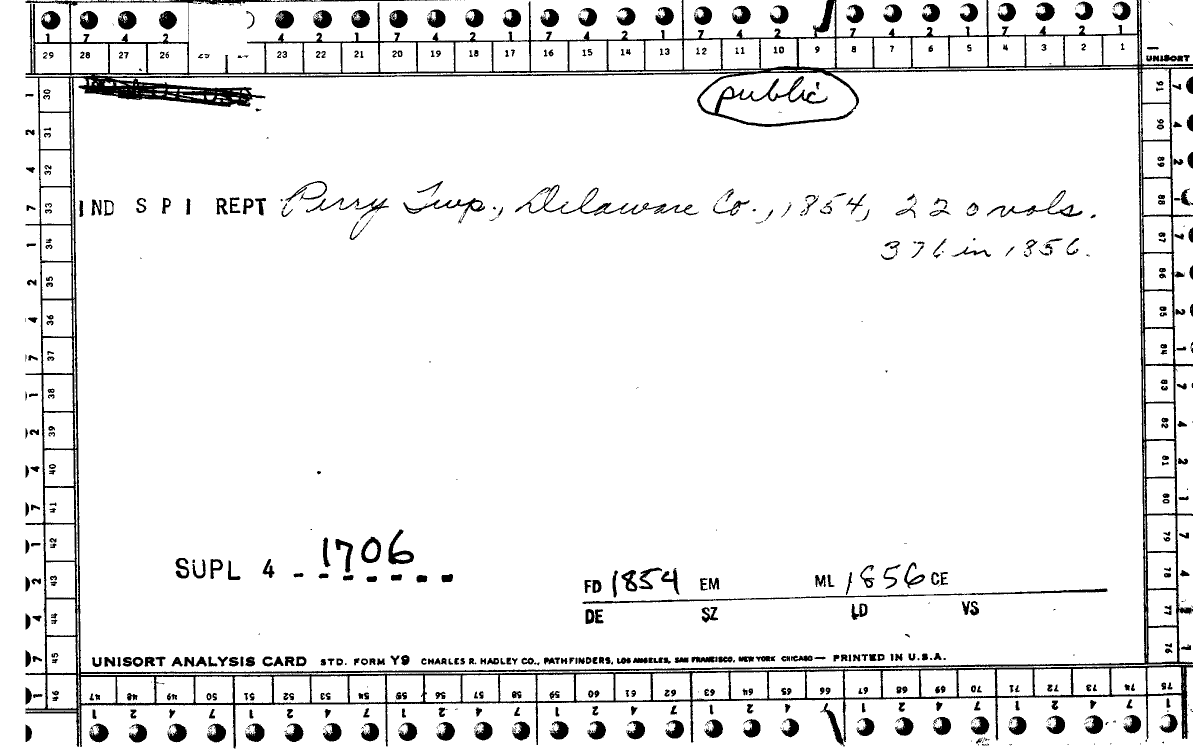 1 7 4 2 4 2 1 7 4 2 1 7 4 2 1 7 4 2 1 7 4 2 1 7 4 2 1
29 28 27 26 23 22 21 20 19 18 17 16 15 14 13 12 11 10 9 8 7 6 5 4 3 2 1
UNISORT
public
IND S P I REPT Perry Twp., Delaware Co., 1854, 220 vols.
376 in 1856.
SUPL 4 - 1706
FD 1854 EM ML 1856 CE
DE SZ LD VS
UNISORT ANALYSIS CARD STD. FORM Y9 CHARLES R. HADLEY CO., PATHFINDERS, LOS ANGELES, SAN FRANCISCO, NEW YORK CHICAGO — PRINTED IN U.S.A.
1 30
2 31
4 32
7 33
1 34
2 35
4 36
7 37
1 38
2 39
4 40
7 41
1 42
2 43
4 44
7 45
1 46
91 7
90 4
89 2
88 1
87 7
86 4
85 2
84 1
83 7
82 4
81 2
80 1
79 7
78 4
77 2
76 1
47 48 49 50 51 52 53 54 55 56 57 58 59 60 61 62 63 64 65 66 67 68 69 70 71 72 73 74 75
1 2 4 7 1 2 4 7 1 2 4 7 1 2 4 7 1 2 4 7 1 2 4 7 1 2 4 7 1